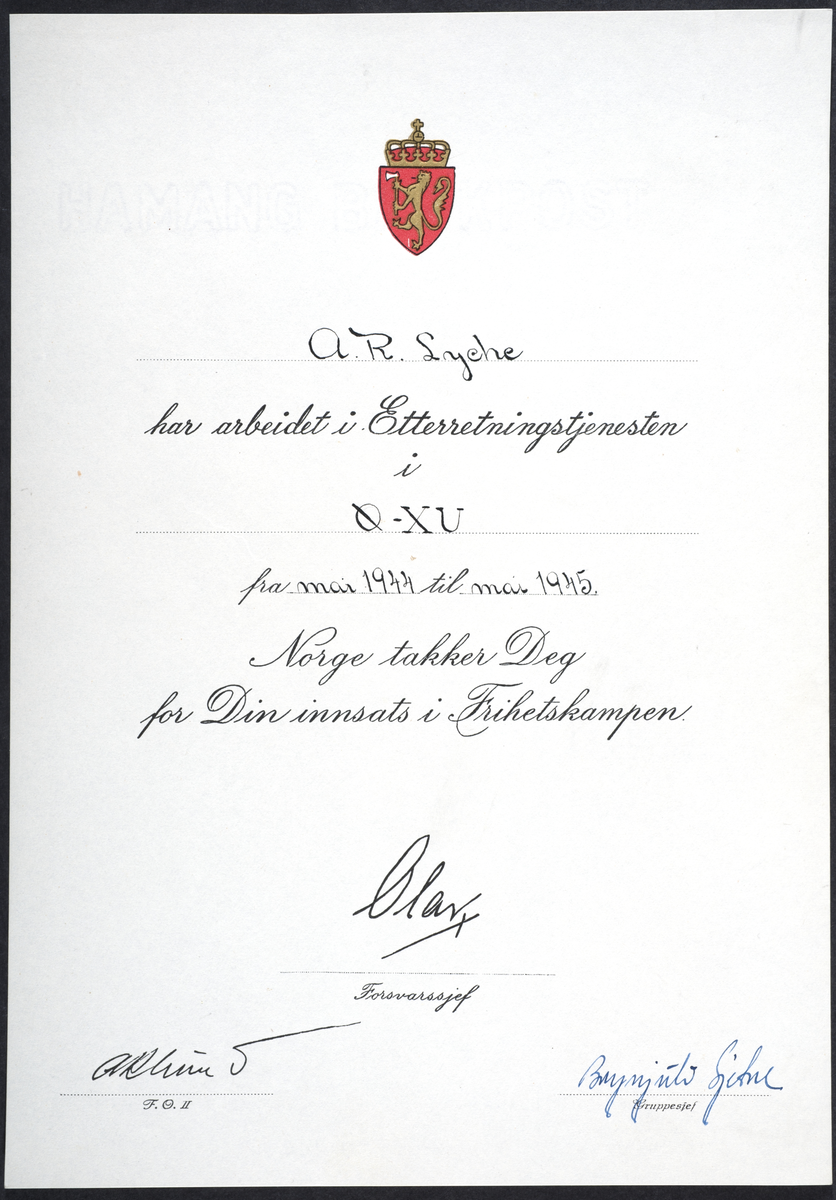 A. R. Lyche
har arbeidet i Etterretningstjenesten
i
Ø-XU
fra mai 1944 til mai 1945.
Norge takker Deg
for Din innsats i Frihetskampen.
Olav
Forsvarssjef
F. O. II
Gruppesjef